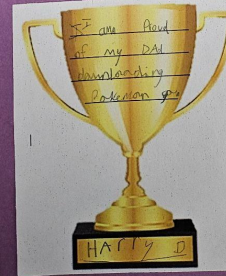 I am Proud
of my DAd
downloading
Pokemon go
HArry D